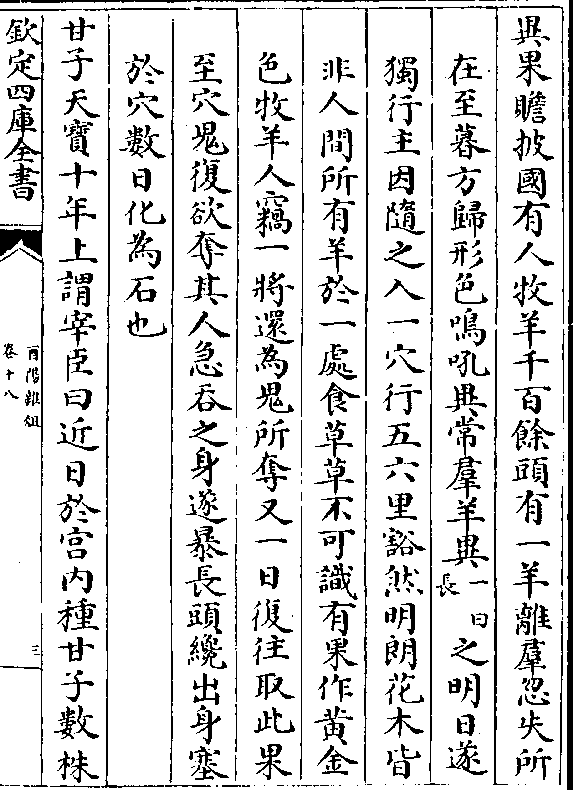 異果贍披國有人牧羊千百餘頭有一羊離羣忽失所
在至暮方歸形色鳴吼異常羣羊異一曰長之明日遂
獨行主因隨之入一穴行五六里豁然明朗花木皆
非人間所有羊於一處食草草不可識有果作黃金
色牧羊人竊一將還為鬼所奪又一日復往取此果
至穴鬼復欲奪其人急吞之身遂暴長頭纔出身塞
於穴數日化為石也
甘子天寶十年上謂宰臣曰近日於宫内種甘子數株
欽定四庫全書
酉陽雜俎
卷十八
三